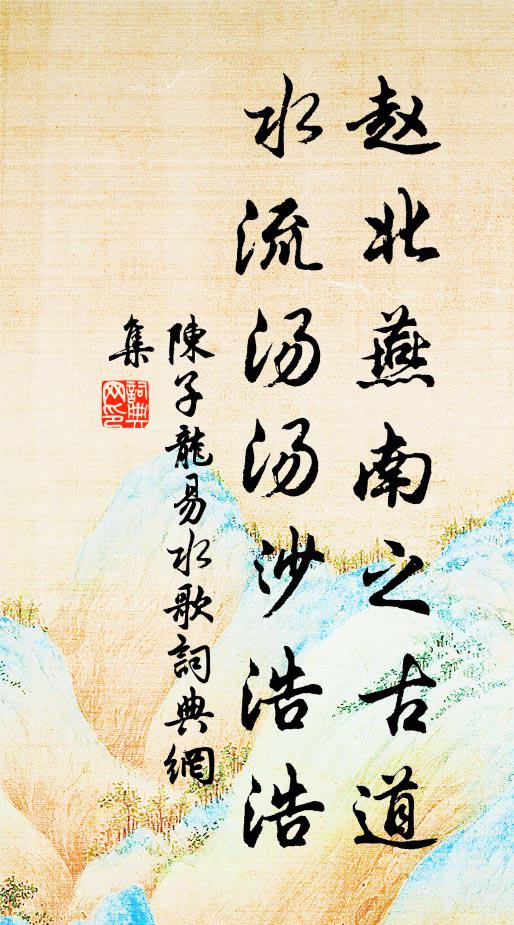 赵北燕南之古道
水流汤汤沙浩浩
陳子龍易水歌詞典網
集
詞典
网印